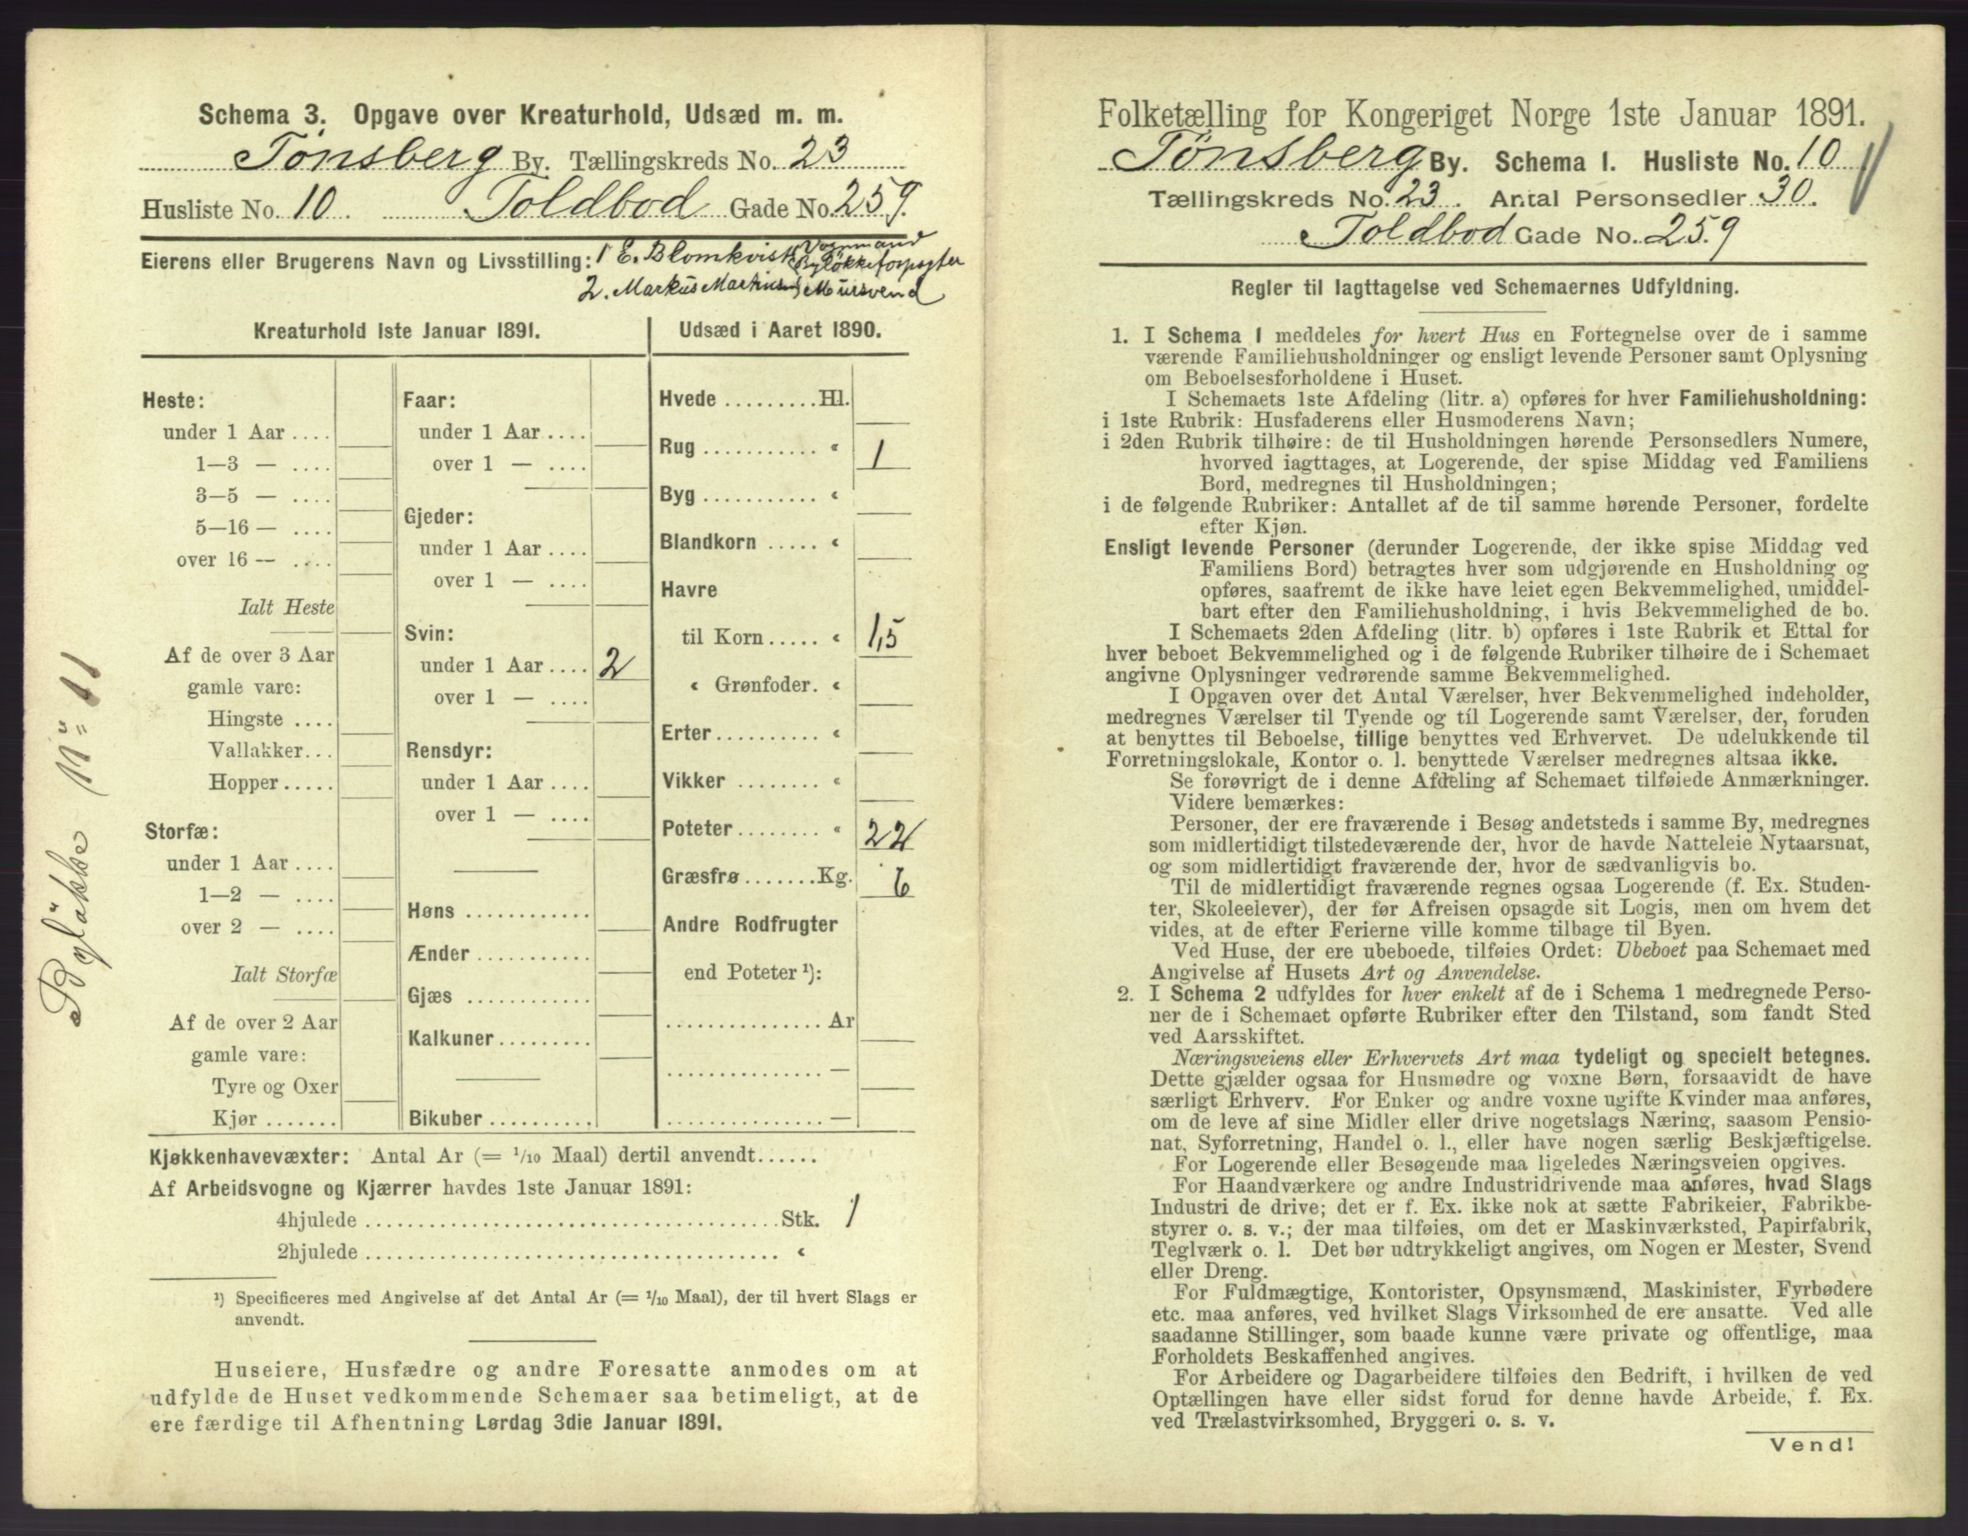 Schema 3. Opgave over Kreaturhold, Udsæd m. m.
Tönsberg By. Tællingskreds No. 23
Husliste No. 10. Toldbod Gade No. 259.
Eierens eller Brugerens Navn og Livsstilling: 1 E. Blomkvist, Vognmand Byløkkeforpagter
2. Markus Mathisen, Mursvend
Kreaturhold 1ste Januar 1891.
Heste:
under 1 Aar ....
1—3 — ....
3—5 — ....
5—16 — ....
over 16 — ....
Ialt Heste
Af de over 3 Aar
gamle vare:
Hingste ....
Vallakker...
Hopper.....
Storfæ:
under 1 Aar ....
1—2 — ....
over 2 — ....
Ialt Storfæ
Af de over 2 Aar
gamle vare:
Tyre og Oxer
Kjør .......
Faar:
under 1 Aar ....
over 1 — ....
Gjeder:
under 1 Aar ....
over 1 — ....
Svin:
under 1 Aar .... 2
over 1 — ....
Rensdyr:
under 1 Aar ....
over 1 — ....
Høns ............
Ænder ...........
Gjæs ............
Kalkuner.........
Bikuber ..........
Udsæd i Aaret 1890.
Hvede .........Hl.
Rug ........... « 1
Byg ........... «
Blandkorn ..... «
Havre
til Korn..... « 1,5
« Grønfoder. «
Erter.......... «
Vikker ........ «
Poteter........ « 22
Græsfrø.......Kg. 6
Andre Rodfrugter
end Poteter ¹):
...............Ar
...............—
...............—
Kjøkkenhavevæxter: Antal Ar (= 1/10 Maal) dertil anvendt......
Af Arbeidsvogne og Kjærrer havdes 1ste Januar 1891:
4hjulede ........................................Stk. 1
2hjulede ........................................ «
¹) Specificeres med Angivelse af det Antal Ar (= 1/10 Maal), der til hvert Slags er
anvendt.
Huseiere, Husfædre og andre Foresatte anmodes om at
udfylde de Huset vedkommende Schemaer saa betimeligt, at de
ere færdige til Afhentning Lørdag 3die Januar 1891.
Byløkke N" 11
Folketælling for Kongeriget Norge 1ste Januar 1891.
Tönsberg By. Schema 1. Husliste No. 10
Tællingskreds No. 23. Antal Personsedler 30.
Toldbod Gade No. 259
Regler til Iagttagelse ved Schemaernes Udfyldning.
1. I Schema 1 meddeles for hvert Hus en Fortegnelse over de i samme
værende Familiehusholdninger og ensligt levende Personer samt Oplysning
om Beboelsesforholdene i Huset.
I Schemaets 1ste Afdeling (litr. a) opføres for hver Familiehusholdning:
i 1ste Rubrik: Husfaderens eller Husmoderens Navn;
i 2den Rubrik tilhøire: de til Husholdningen hørende Personsedlers Numere,
hvorved iagttages, at Logerende, der spise Middag ved Familiens
Bord, medregnes til Husholdningen;
i de følgende Rubriker: Antallet af de til samme hørende Personer, fordelte
efter Kjøn.
Ensligt levende Personer (derunder Logerende, der ikke spise Middag ved
Familiens Bord) betragtes hver som udgjørende en Husholdning og
opføres, saafremt de ikke have leiet egen Bekvemmelighed, umiddel-
bart efter den Familiehusholdning, i hvis Bekvemmelighed de bo.
I Schemaets 2den Afdeling (litr. b) opføres i 1ste Rubrik et Ettal for
hver beboet Bekvemmelighed og i de følgende Rubriker tilhøire de i Schemaet
angivne Oplysninger vedrørende samme Bekvemmelighed.
I Opgaven over det Antal Værelser, hver Bekvemmelighed indeholder,
medregnes Værelser til Tyende og til Logerende samt Værelser, der, foruden
at benyttes til Beboelse, tillige benyttes ved Erhvervet. De udelukkende til
Forretningslokale, Kontor o. l. benyttede Værelser medregnes altsaa ikke.
Se forøvrigt de i denne Afdeling af Schemaet tilføiede Anmærkninger.
Videre bemærkes:
Personer, der ere fraværende i Besøg andetsteds i samme By, medregnes
som midlertidigt tilstedeværende der, hvor de havde Natteleie Nytaarsnat,
og som midlertidigt fraværende der, hvor de sædvanligvis bo.
Til de midlertidigt fraværende regnes ogsaa Logerende (f. Ex. Studen-
ter, Skoleelever), der før Afreisen opsagde sit Logis, men om hvem det
vides, at de efter Ferierne ville komme tilbage til Byen.
Ved Huse, der ere ubeboede, tilføies Ordet: Ubeboet paa Schemaet med
Angivelse af Husets Art og Anvendelse.
2. I Schema 2 udfyldes for hver enkelt af de i Schema 1 medregnede Perso-
ner de i Schemaet opførte Rubriker efter den Tilstand, som fandt Sted
ved Aarsskiftet.
Næringsveiens eller Erhvervets Art maa tydeligt og specielt betegnes.
Dette gjælder ogsaa for Husmødre og voxne Børn, forsaavidt de have
særligt Erhverv. For Enker og andre voxne ugifte Kvinder maa anføres,
om de leve af sine Midler eller drive nogetslags Næring, saasom Pensio-
nat, Syforretning, Handel o. l., eller have nogen særlig Beskjæftigelse.
For Logerende eller Besøgende maa ligeledes Næringsveien opgives.
For Haandværkere og andre Industridrivende maa anføres, hvad Slags
Industri de drive; det er f. Ex. ikke nok at sætte Fabrikeier, Fabrikbe-
styrer o. s. v.; der maa tilføies, om det er Maskinværksted, Papirfabrik,
Teglværk o. l. Det bør udtrykkeligt angives, om Nogen er Mester, Svend
eller Dreng.
For Fuldmægtige, Kontorister, Opsynsmænd, Maskinister, Fyrbødere
etc. maa anføres, ved hvilket Slags Virksomhed de ere ansatte. Ved alle
saadanne Stillinger, som baade kunne være private og offentlige, maa
Forholdets Beskaffenhed angives.
For Arbeidere og Dagarbeidere tilføies den Bedrift, i hvilken de ved
Optællingen have eller sidst forud for denne havde Arbeide, f. Ex.
ved Trælastvirksomhed, Bryggeri o. s. v.
Vend!